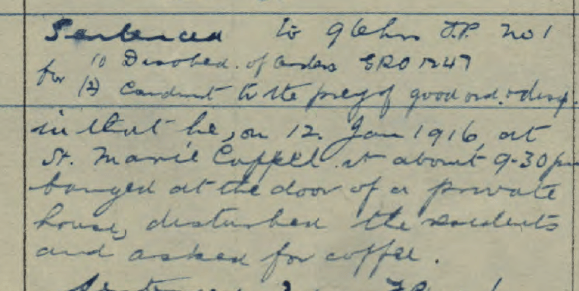 Sentenced to 96 hrs F.P. No 1
for (1) Disobed. of Orders GRO 1247
(2) Conduct to the prej of good ord. & disp
in that he, on 12. Jan 1916, at
St. Marie Cappell at about 9-30 pm
banged at the door of a private
house, disturbed the residents
and asked for coffee.